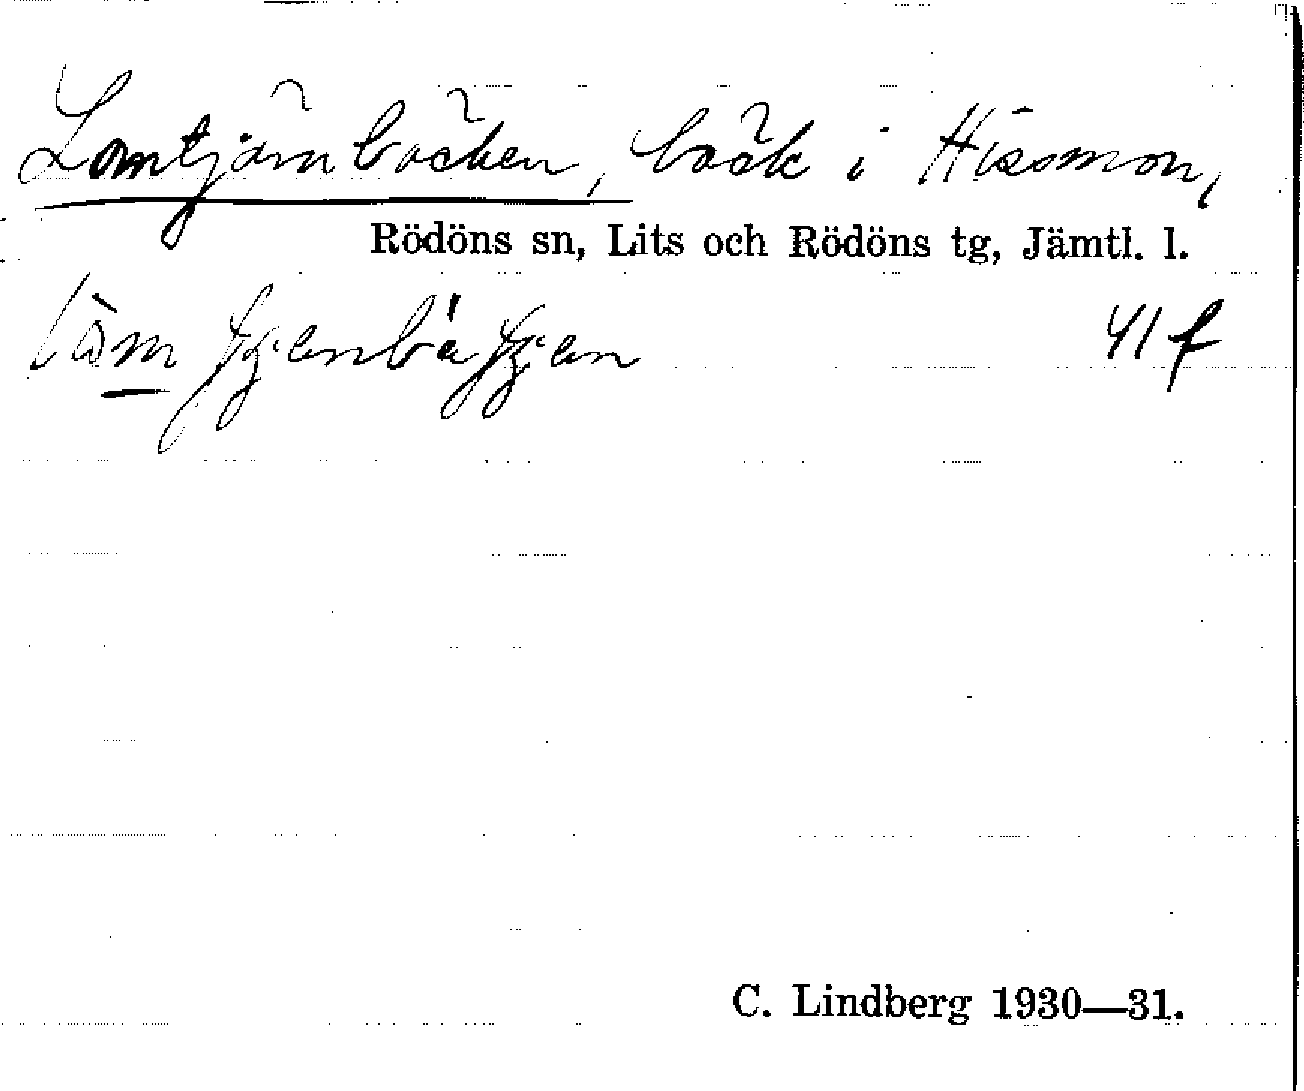 Lomtjärnbäcken, bäck i Hissmon,
Rödöns sn, Lits och Rödöns tg, Jämtl. l.
41 f
C. Lindberg 1930—31.